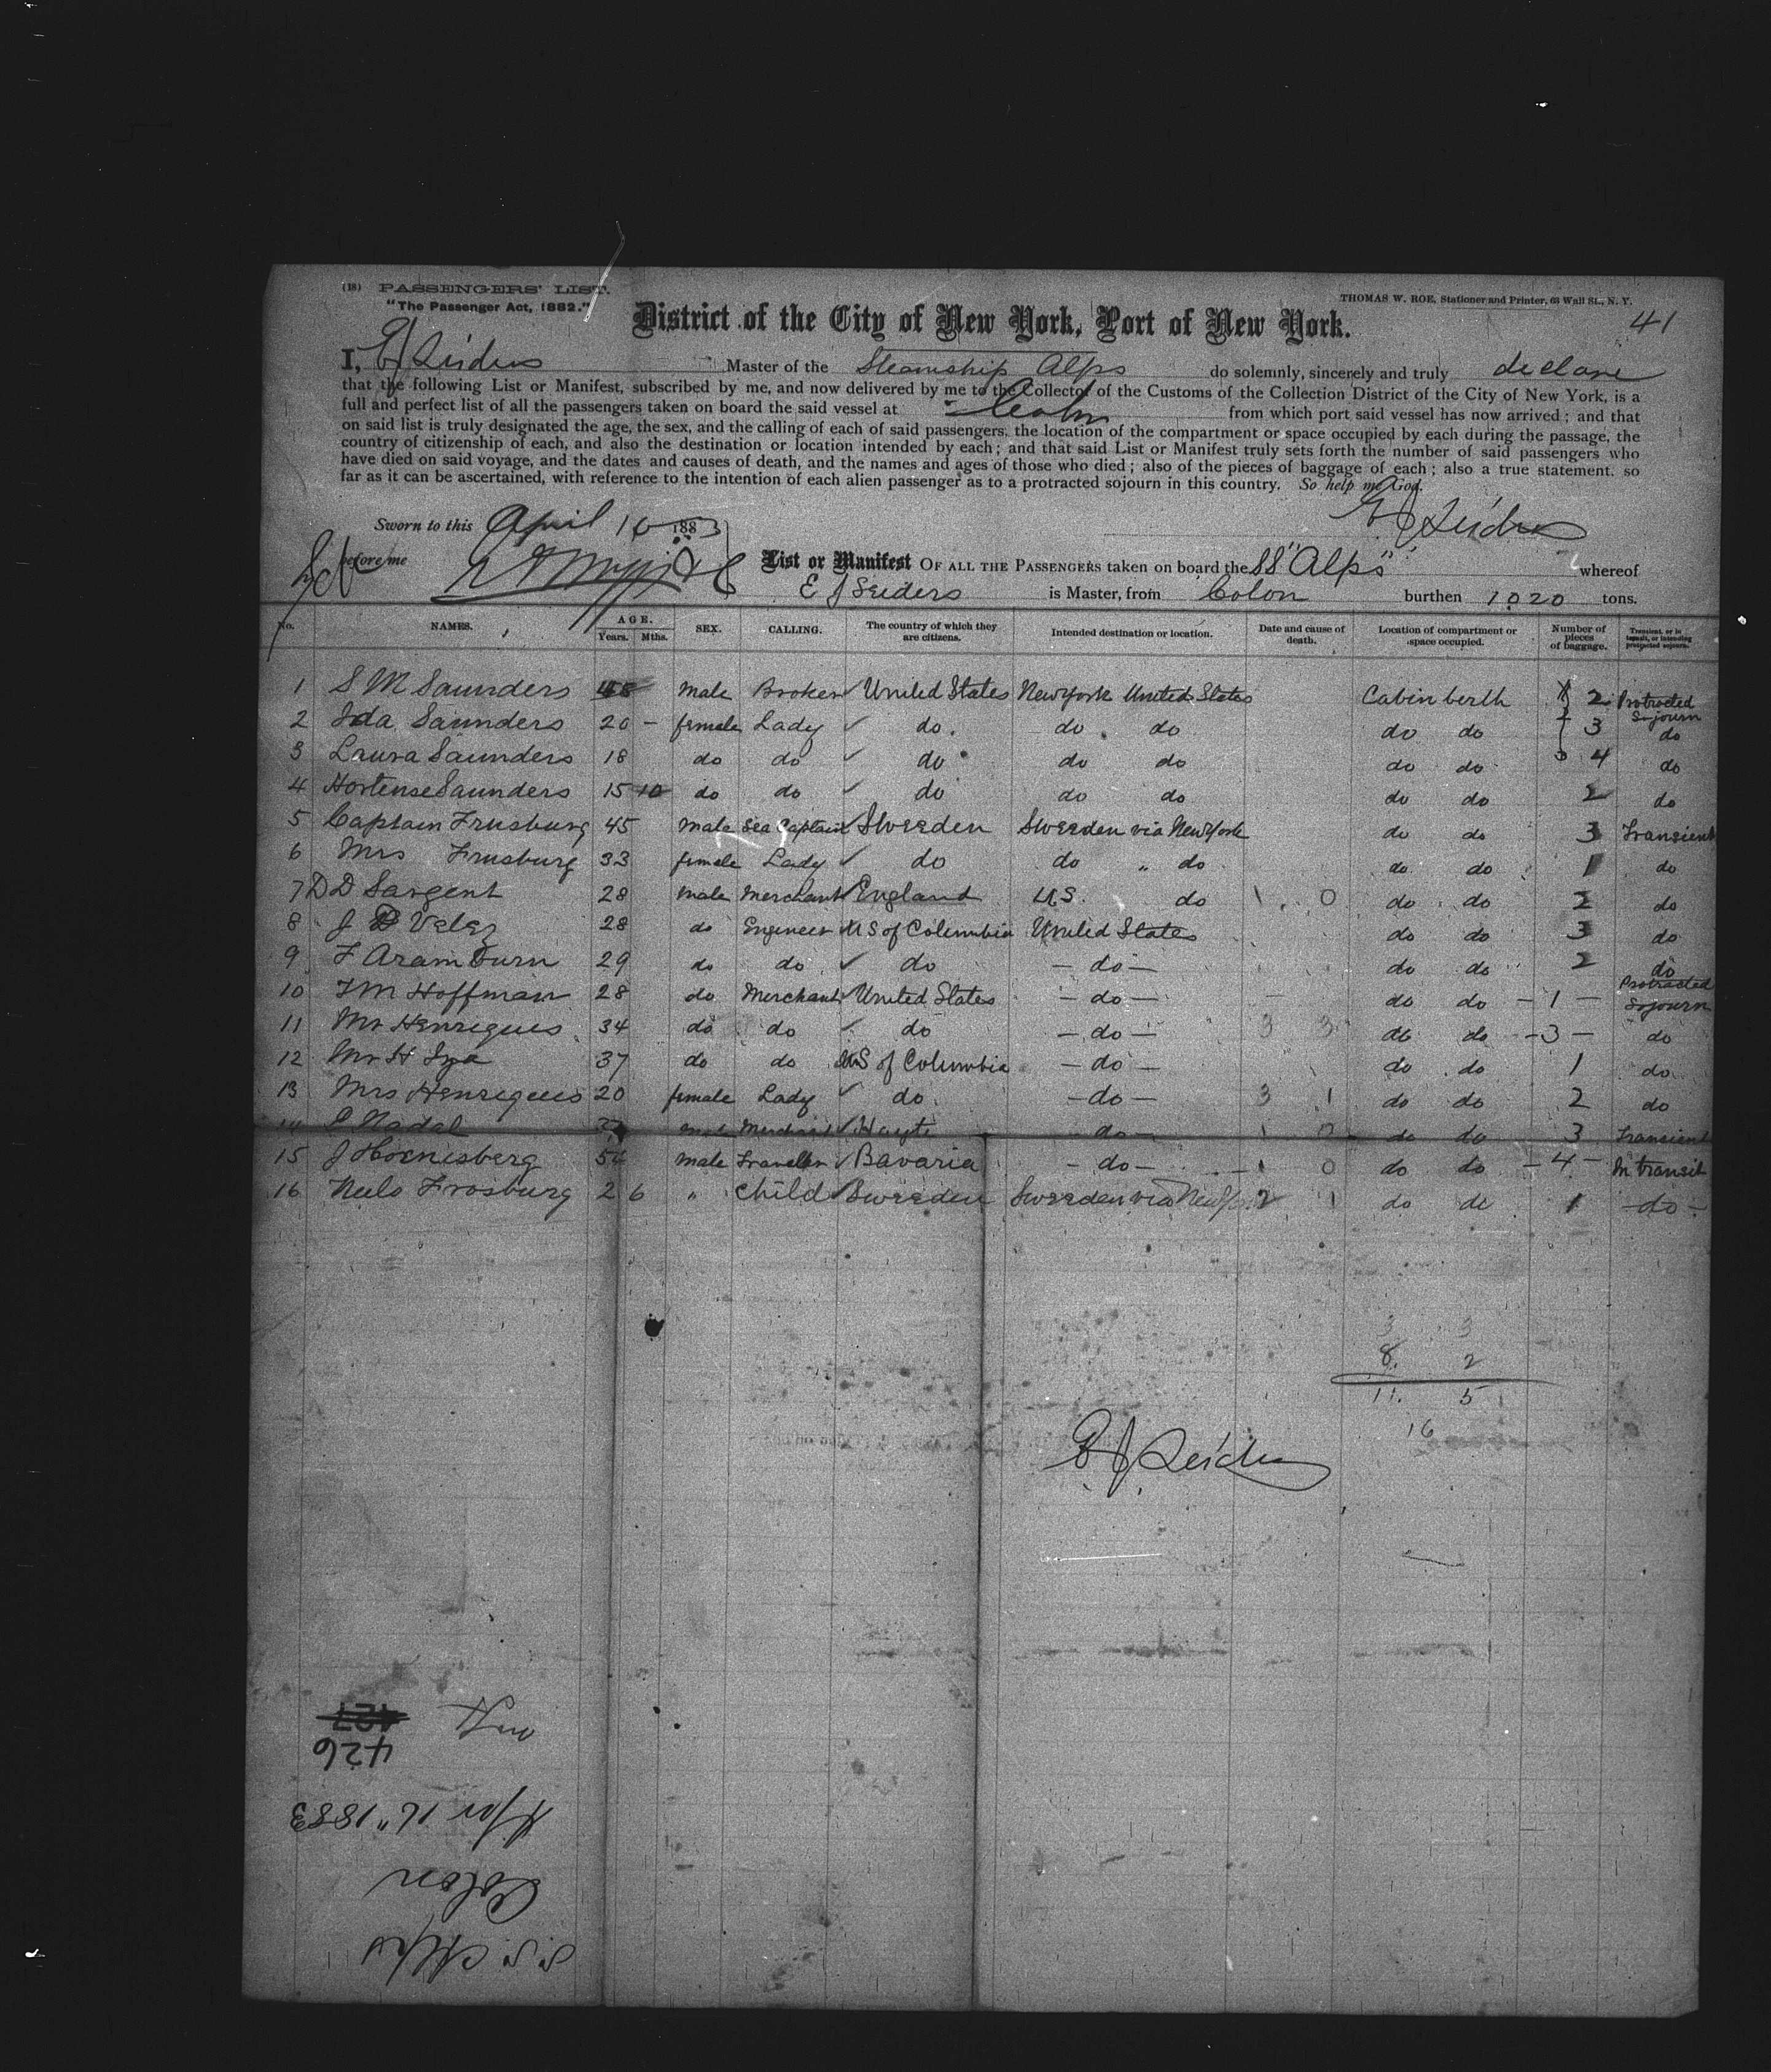 (18) PASSENGERS' LIST.
"The Passenger Act, 1882."
THOMAS W. ROE, Stationer and Printer, 63 Wall St., N. Y.
District of the City of New York, Port of New York.
41
I, E J Seiders Master of the Steamship Alps do solemnly, sincerely and truly declare
that the following List or Manifest, subscribed by me, and now delivered by me to the Collector of the Customs of the Collection District of the City of New York, is a
full and perfect list of all the passengers taken on board the said vessel at Colon from which port said vessel has now arrived; and that
on said list is truly designated the age, the sex, and the calling of each of said passengers, the location of the compartment or space occupied by each during the passage, the
country of citizenship of each, and also the destination or location intended by each; and that said List or Manifest truly sets forth the number of said passengers who
have died on said voyage, and the dates and causes of death, and the names and ages of those who died; also of the pieces of baggage of each; also a true statement, so
far as it can be ascertained, with reference to the intention of each alien passenger as to a protracted sojourn in this country. So help me God.
E J Seiders
Sworn to this April 16 1883
before me
List or Manifest OF ALL THE PASSENGERS taken on board the SS "Alps" whereof
E J Seiders is Master, from Colon burthen 1020 tons.
No. NAMES. AGE. Years. Mths. SEX. CALLING. The country of which they are citizens. Intended destination or location. Date and cause of death. Location of compartment or space occupied. Number of pieces of baggage. Transient, or in transit, or intending protracted sojourn.
1 S M Saunders male Broker United States New York United States Cabin berth 2 Protracted Sojourn
2 Ida Saunders 20 – female Lady do. do do do do 3 do
3 Laura Saunders 18 do do do do do do do 4 do
4 Hortense Saunders 15 10 do do do do do do do 2 do
5 Captain Frusburg 45 male Sea Captain Sweeden Sweeden via New York do do 3 Transient
6 Mrs Frusburg 33 female Lady do do " do do do 1 do
7 D D Sargent 28 male Merchant England U.S. do 1 0 do do 2 do
8 J Velez 28 do Engineer U S of Columbia United States do do 3 do
9 F Aramburn 29 do do do – do – do do 2 do
10 I M Hoffman 28 do Merchant United States – do – do do – 1 – Protracted Sojourn
11 Mr Henriques 34 do do do – do – 3 3 do do – 3 – do
12 Mr H 37 do do U S of Columbia – do – do do 1 do
13 Mrs Henriques 20 female Lady do. – do – 3 1 do do 2 do
14 Nadal male Merchant Hayti – do – do do 3 Transient
15 J Hoenisberg 54 male Traveller Bavaria – do – 1 0 do do – 4 – In transit
16 Neels Frosburg 2 6 " Child Sweeden Sweeden via New Yor 2 1 do do 1 – do –
3 3
8. 2
11. 5
16
E J Seiders
427
426
Apr 16" 1883
Colon
S. S. Alps